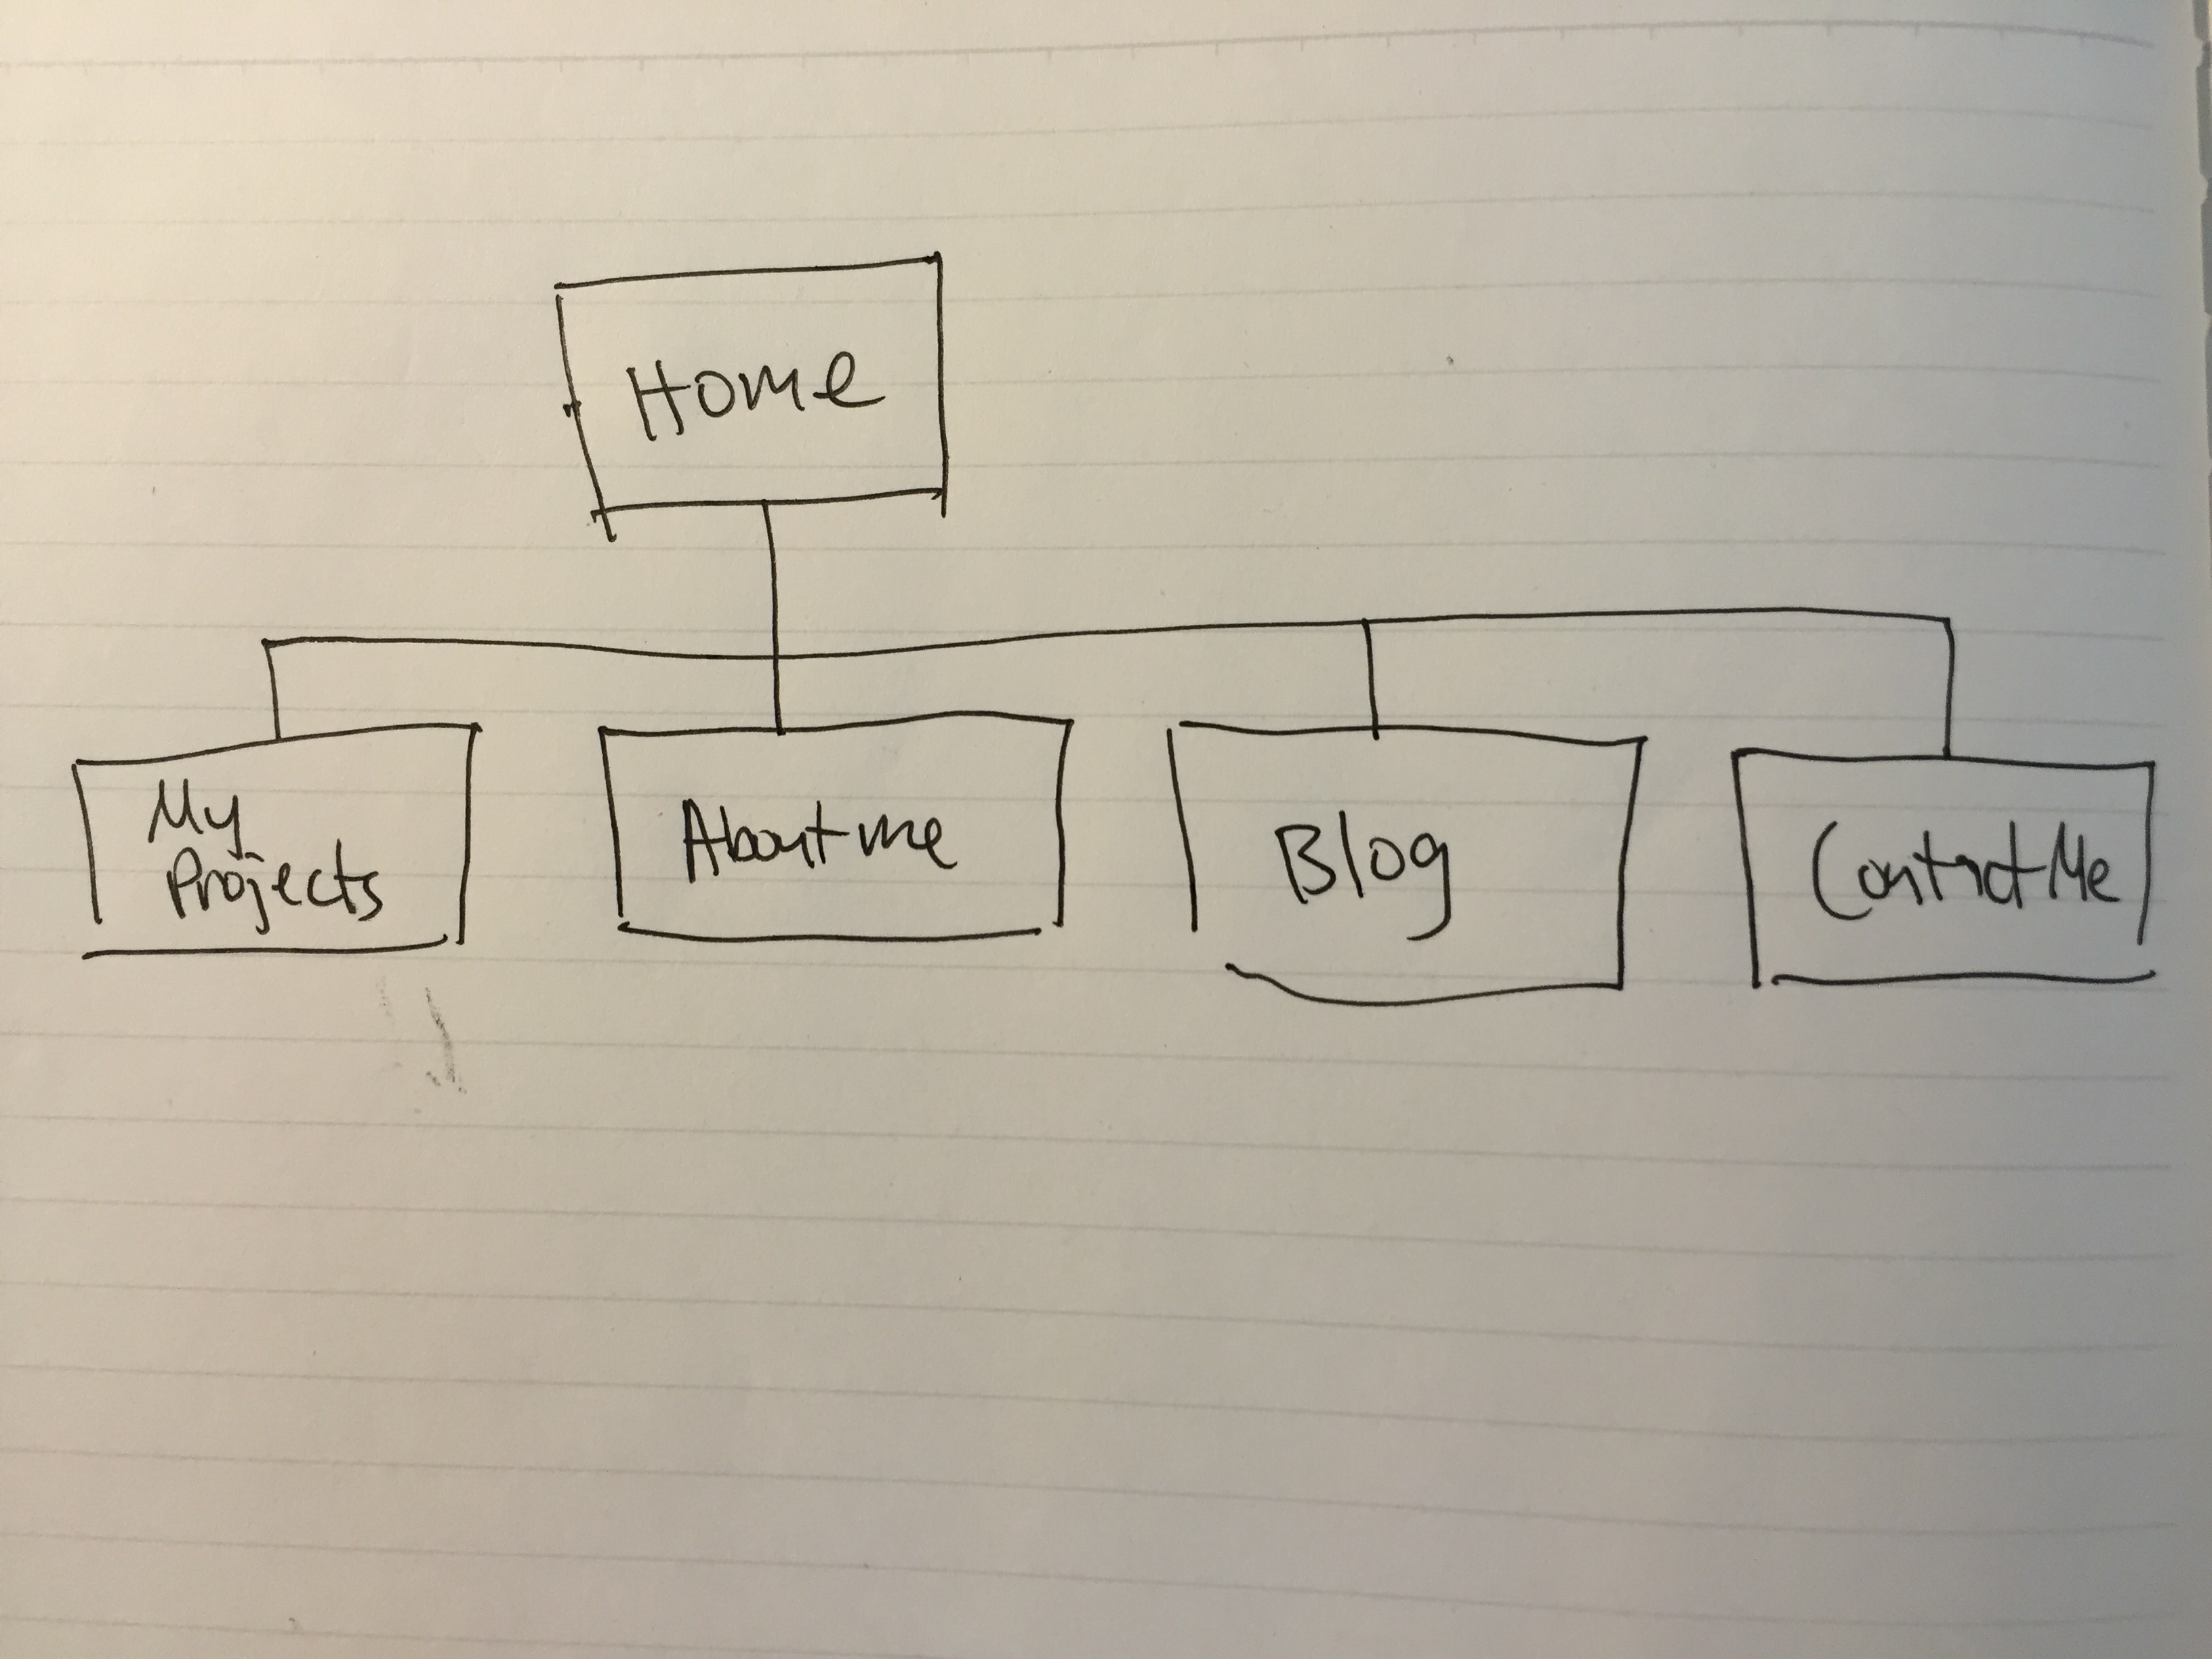 Home
My
Projects
About me
Blog
Contact Me